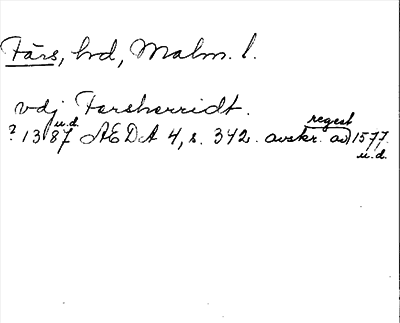 Färs, hd, Malm. l.
vdj Fersherridt.
? 1387 u.d. AEDA 4, s. 342. avskr. av regest 1577. u.d.